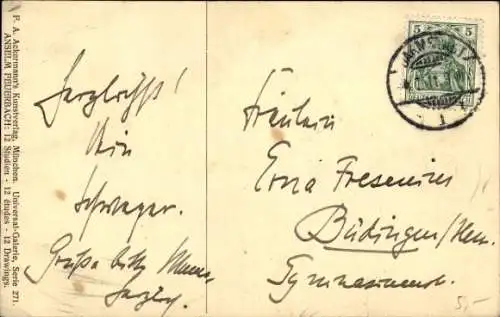 P. A. Ackermann's Kunstverlag, München. Universal-Galerie, Serie 271.
ANSELM FEUERBACH: 12 Studien - 12 études - 12 Drawings.
Herzlichst!
Dein
Schwager.
Grüße bitte
5 5
Fräulein
Erna Fresenius
Büdingen/Hessen.
5,-